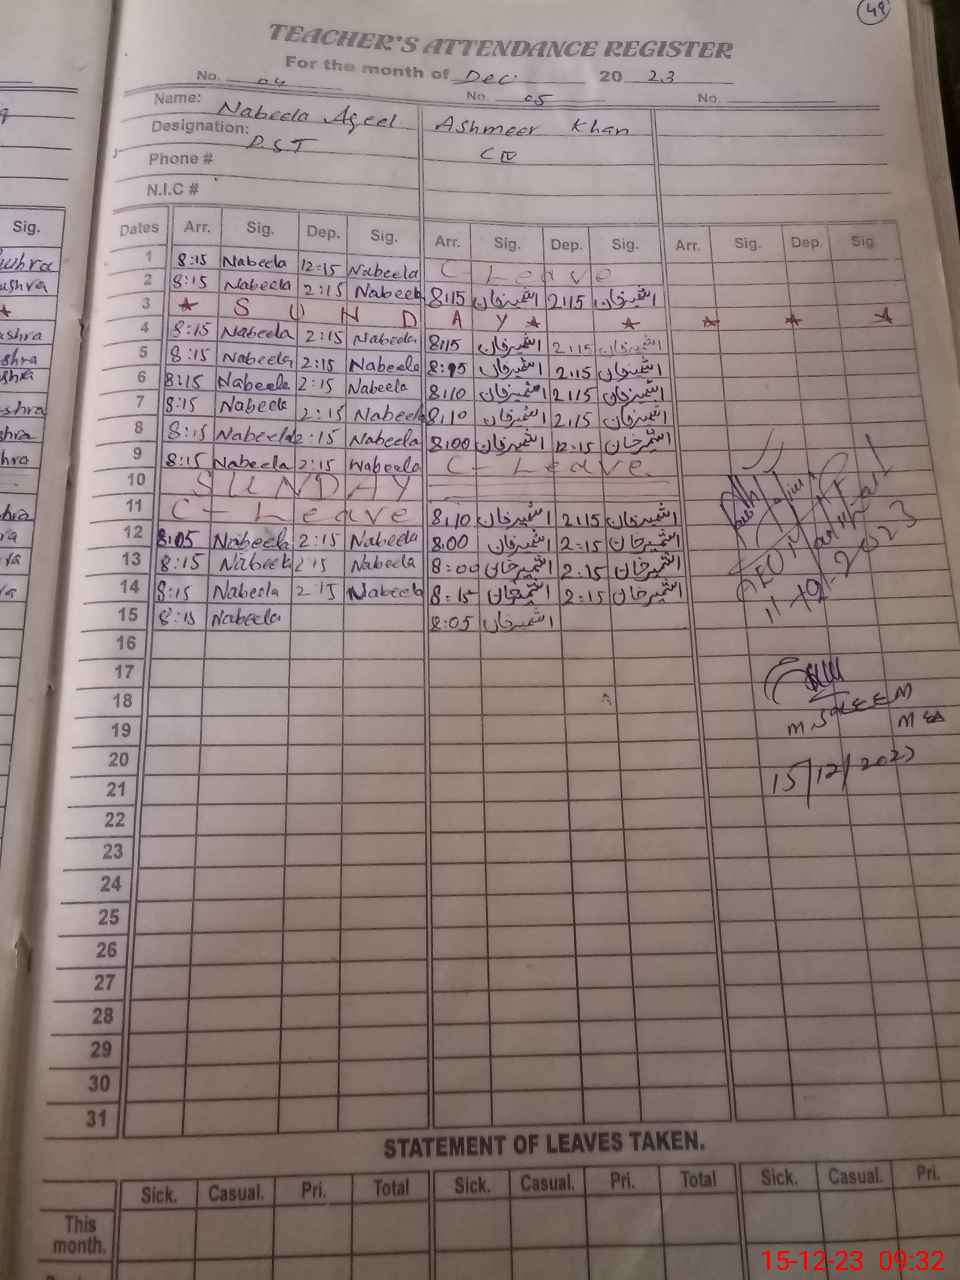 49
TEACHER'S ATTENDANCE REGISTER
For the month of Dec. 2023
No. 04 No. 05 No.
Name: Nabeela Aqeel Ashmeer Khan
Designation: PST
Phone #
N.I.C #
Sig. Dates Arr. Sig. Dep. Sig. Arr. Sig. Dep. Sig. Arr. Sig. Dep. Sig
1 8:15 Nabeela 12:15 Nabeela C - Leave
2 8:15 Nabeela 2:15 Nabeela 8:15 اشمیرخان 2:15 اشمیرخان
3 ★ S U N D A Y ★ ★ ★ ★ ★
4 8:15 Nabeela 2:15 Nabeela 8:15 اشمیرخان 2:15 اشمیرخان
5 8:15 Nabeela 2:15 Nabeela 8:15 اشمیرخان 2:15 اشمیرخان
6 8:15 Nabeela 2:15 Nabeela 8:10 اشمیرخان 2:15 اشمیرخان
7 8:15 Nabeela 2:15 Nabeela 8:10 اشمیرخان 2:15 اشمیرخان
8 8:15 Nabeela 2:15 Nabeela 8:00 اشمیرخان 12:15 اشمیرخان
9 8:15 Nabeela 2:15 Nabeela C - Leave.
10 SUNDAY
11 C - Leave 8:10 اشمیرخان 2:15 اشمیرخان
12 8:05 Nabeela 2:15 Nabeela 8:00 اشمیرخان 2:15 اشمیرخان
13 8:15 Nabeela 2:15 Nabeela 8:00 اشمیرخان 2:15 اشمیرخان
14 8:15 Nabeela 2:15 Nabeela 8:15 اشمیرخان 2:15 اشمیرخان
15 8:15 Nabeela 8:05 اشمیرخان
16
17
18
M. SALEEM
19
MEA
20
15/12/2023
21
22
23
24
25
26
27
28
29
30
31
STATEMENT OF LEAVES TAKEN.
Sick. Casual. Pri. Total Sick. Casual. Pri. Total Sick. Casual. Pri.
This
month.
15-12-23 09:32